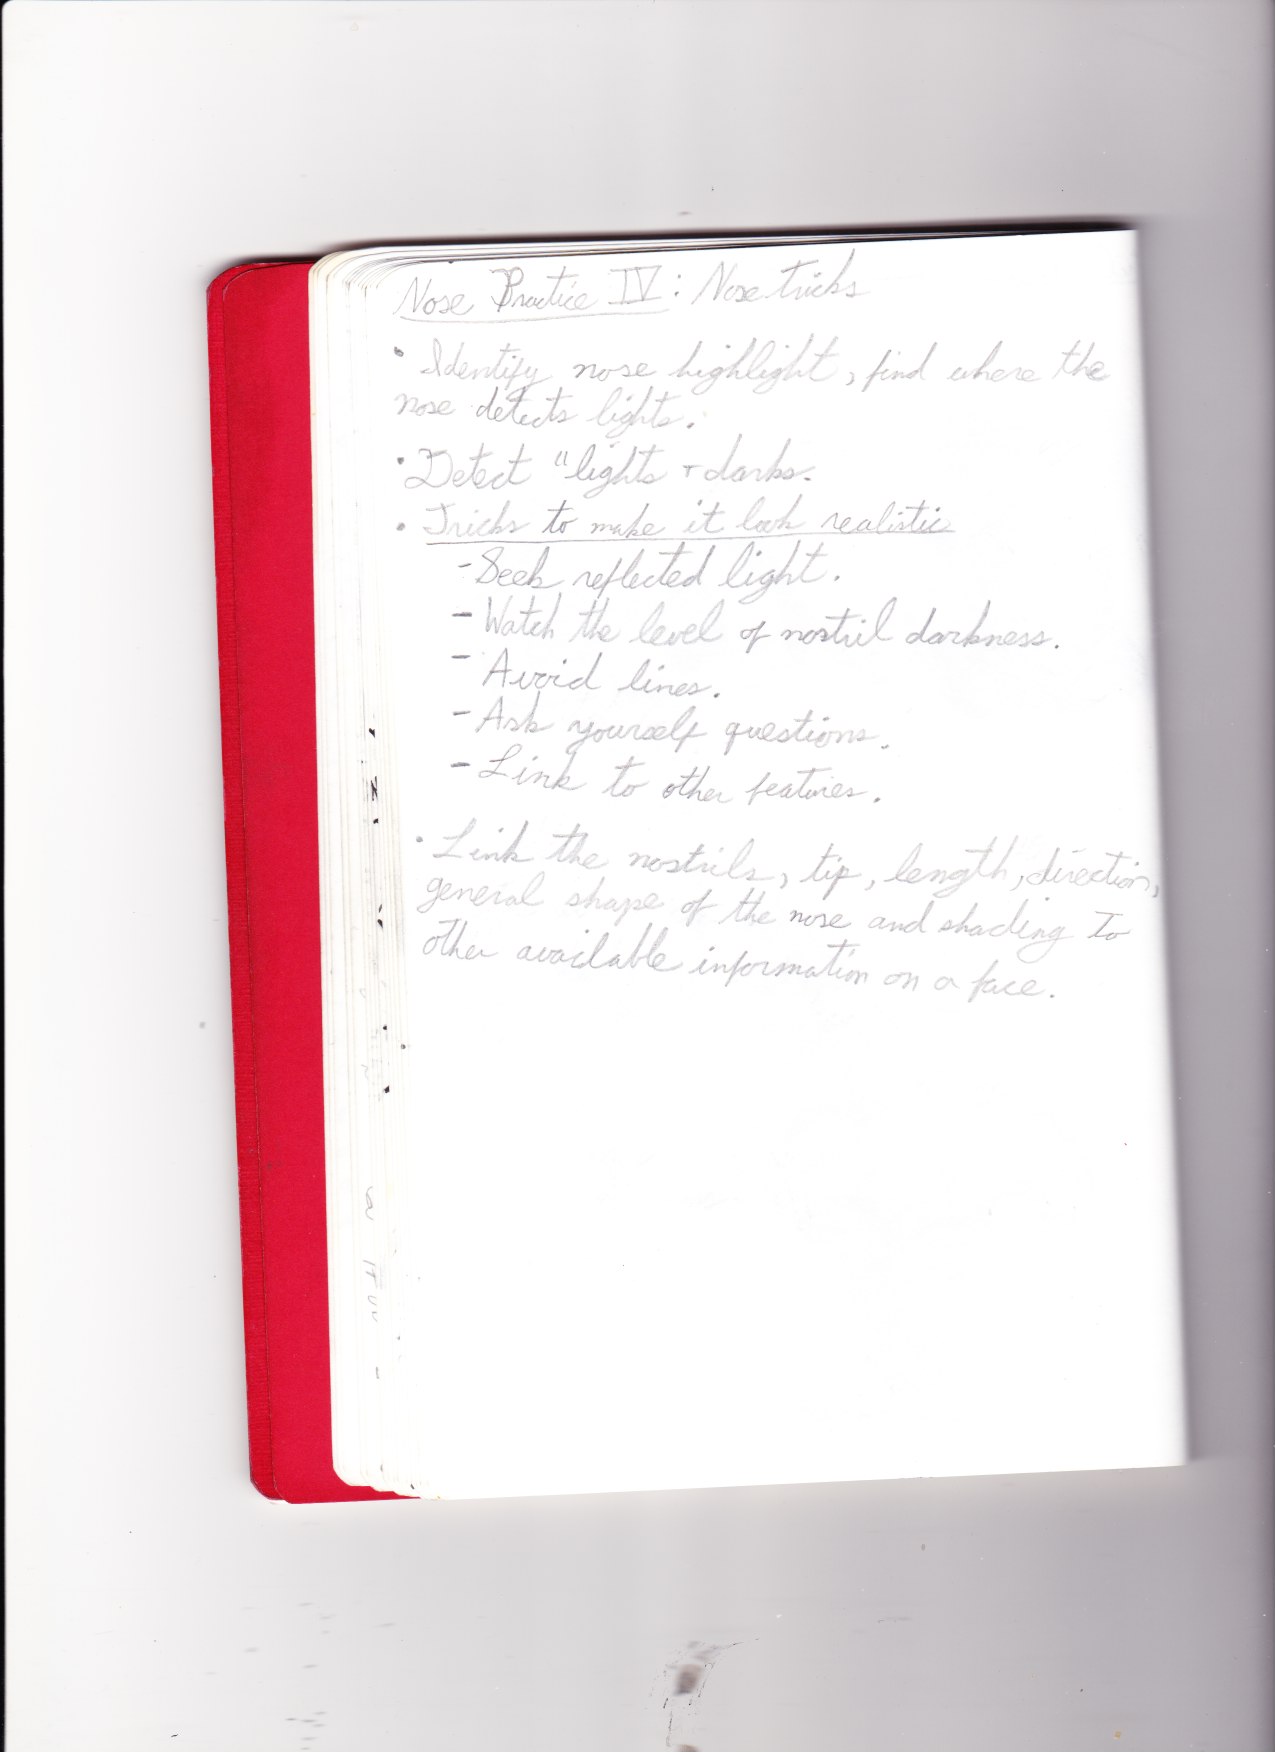 Nose Practice IV: Nose tricks
• Identify nose highlight, find where the
nose detects lights.
• Detect "lights + darks.
• Tricks to make it look realistic
- Seek reflected light.
- Watch the level of nostril darkness.
- Avoid lines.
- Ask yourself questions.
- Link to other features.
• Link the nostrils, tip, length, direction,
general shape of the nose and shading to
other available information on a face.